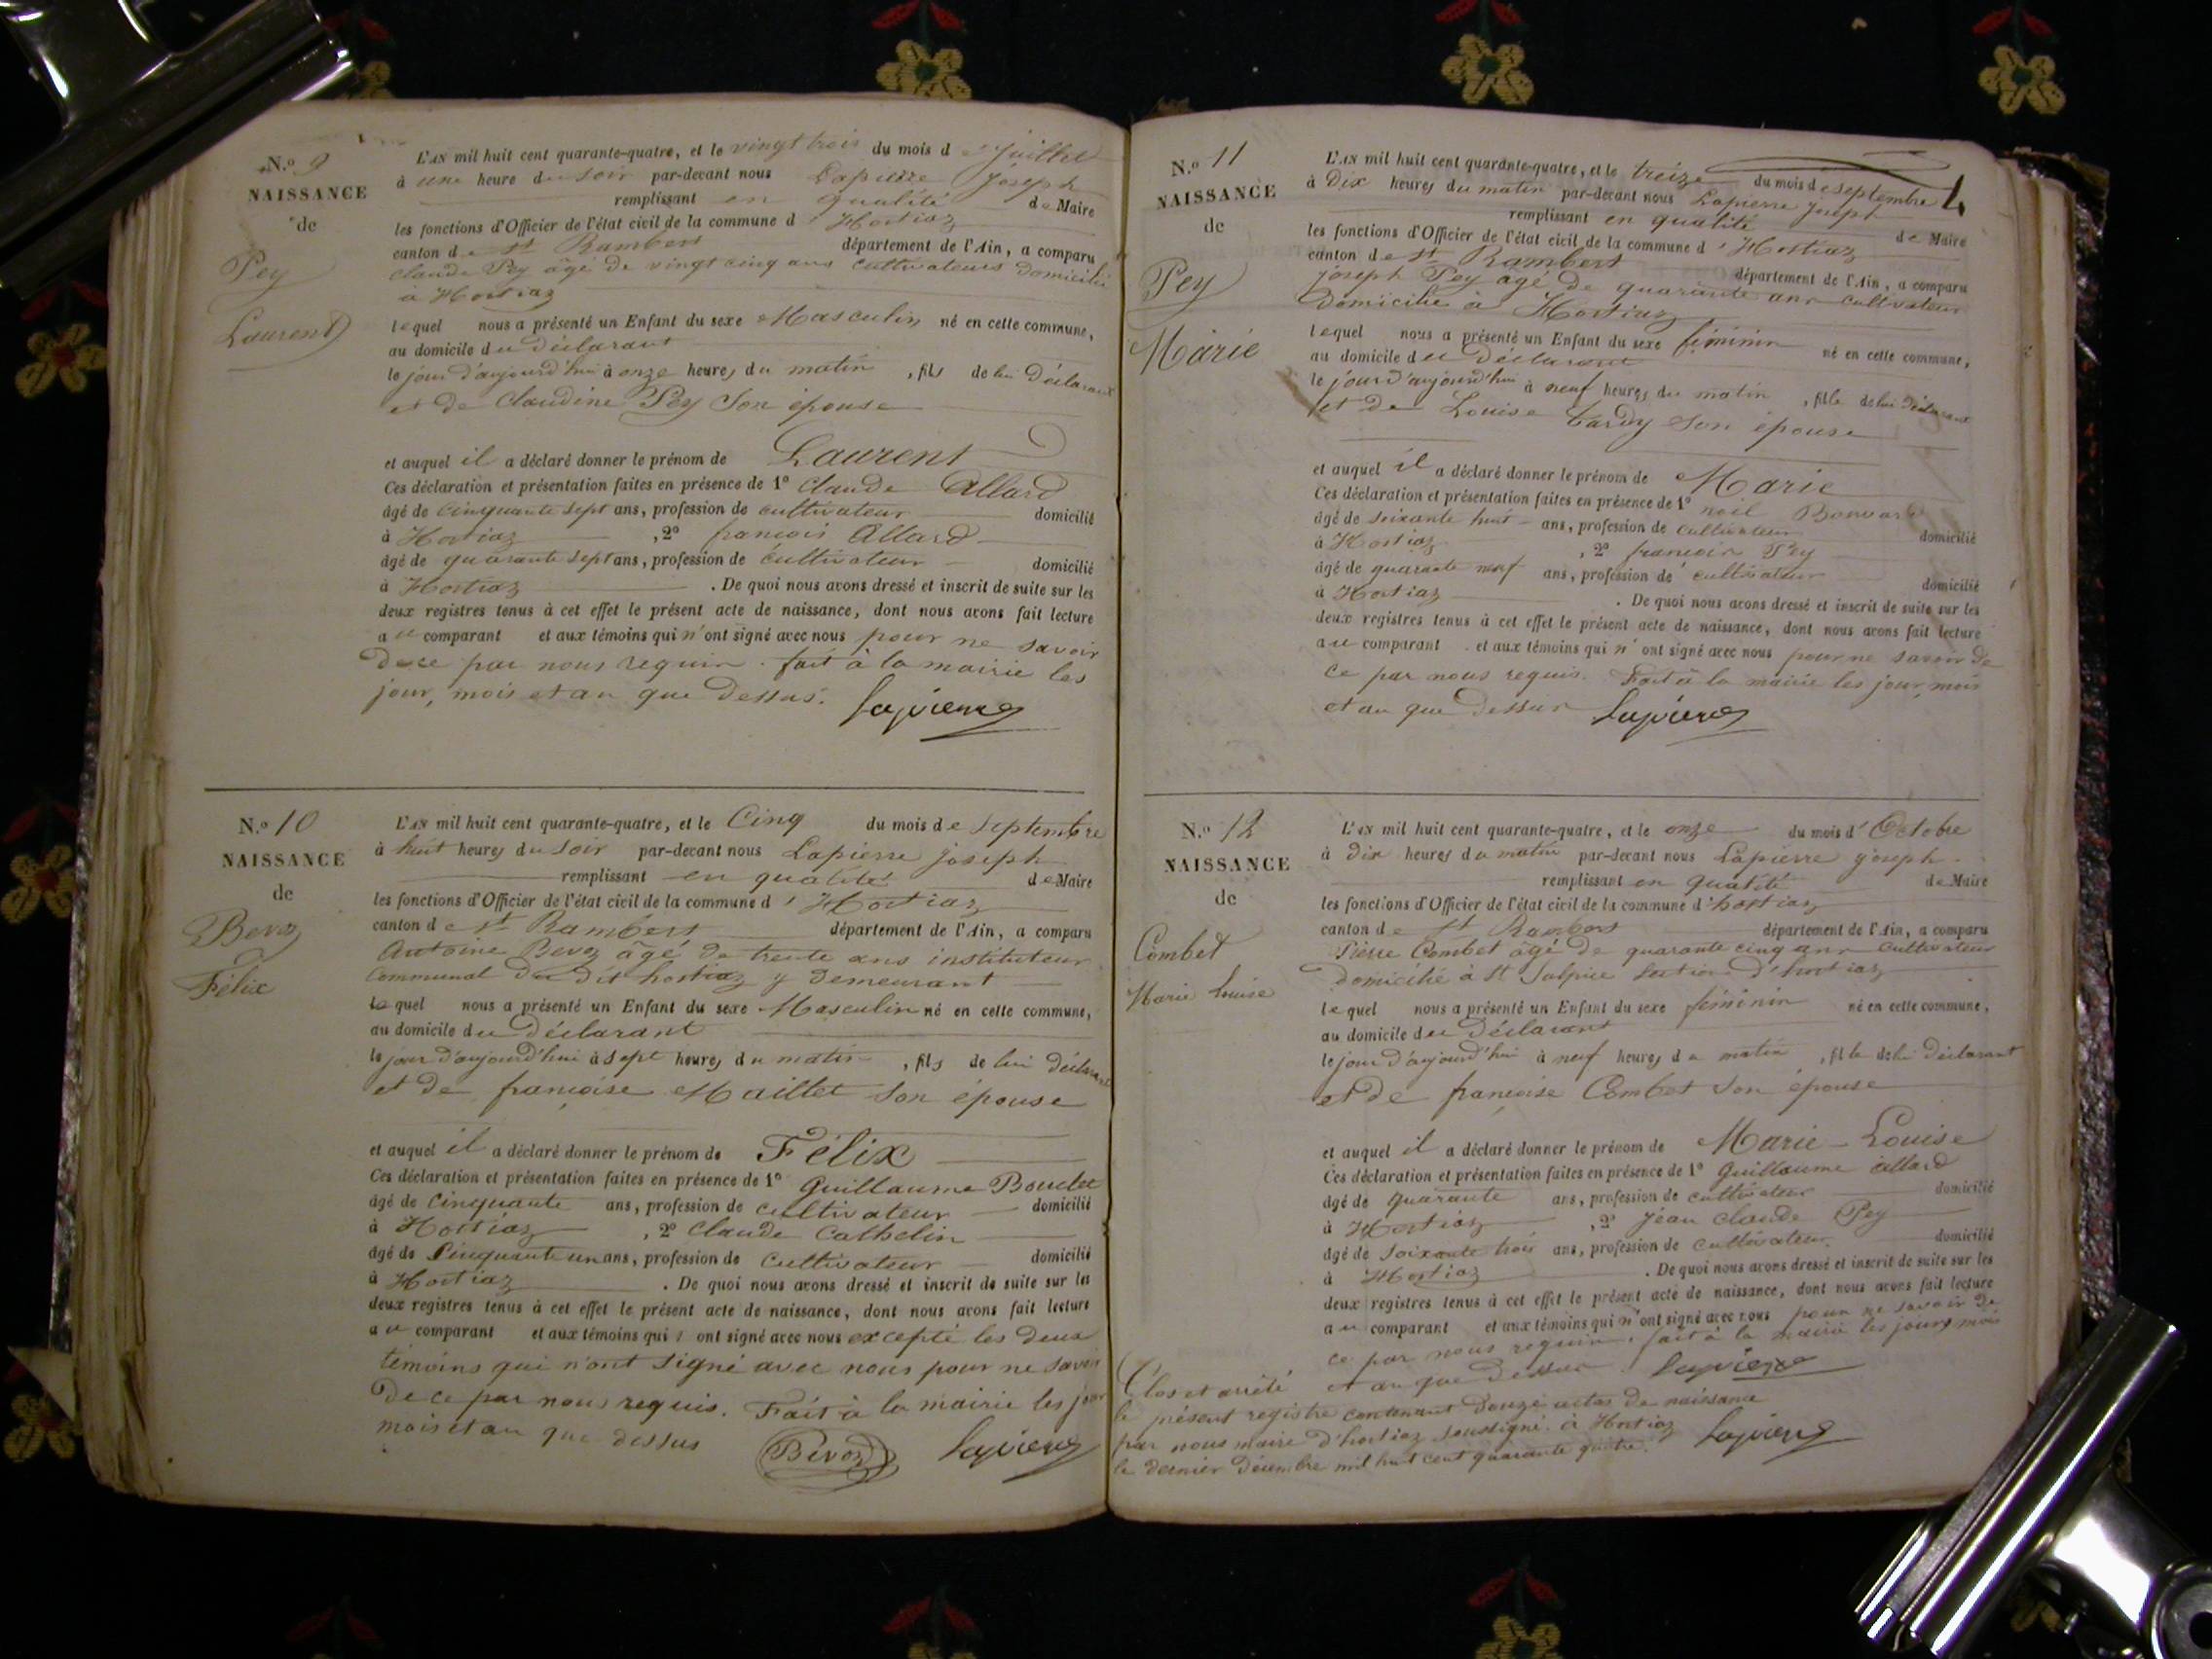 N.º 9
NAISSANCE
de
Pey
Laurent
L'AN mil huit cent quarante-quatre, et le vingt trois du mois d e juillet
à une heure du soir par-devant nous Lapierre joseph
remplissant en qualité de Maire
les fonctions d'Officier de l'état civil de la commune d ' Hortiaz
canton de St Rambert département de l'Ain, a comparu
claude Pey âgé de vingt cinq ans cultivateurs domicilié
à Hortiaz
lequel nous a présenté un Enfant du sexe Masculin né en cette commune,
au domicile du déclarant
le jour d'aujourd'hui à onze heures du matin , fils de lui déclarant
et de Claudine Pey son épouse
et auquel il a déclaré donner le prénom de Laurent
Ces déclaration et présentation faites en présence de 1º Claude Allard
âgé de cinquante sept ans, profession de cultivateur domicilié
à Hortiaz , 2º francois Allard
âgé de quarante sept ans, profession de cultivateur domicilié
à Hortiaz . De quoi nous avons dressé et inscrit de suite sur les
deux registres tenus à cet effet le présent acte de naissance, dont nous avons fait lecture
au comparant et aux témoins qui n'ont signé avec nous pour ne savoir
de ce par nous requis. fait à la mairie les
jour, mois et an que dessus. Lapierre
N.º 10
NAISSANCE
de
Bevoz
Félix
L'AN mil huit cent quarante-quatre, et le Cinq du mois de septembre
à huit heures du soir par-devant nous Lapierre joseph
remplissant en qualité de Maire
les fonctions d'Officier de l'état civil de la commune d ' Hortiaz
canton de St Rambert département de l'Ain, a comparu
Antoine Bevoz âgé de trente ans instituteur
Communal du dit hortiaz y demeurant
lequel nous a présenté un Enfant du sexe Masculin né en cette commune,
au domicile du Déclarant
le jour d'aujourd'hui à sept heures du matin , fils de lui déclarant
et de francoise Maillet son épouse
et auquel il a déclaré donner le prénom de Félix
Ces déclaration et présentation faites en présence de 1º Guillaume Boudet
âgé de Cinquante ans, profession de cultivateur domicilié
à Hortiaz , 2º Claude Cathelin
âgé de Cinquante un ans, profession de cultivateur domicilié
à Hortiaz . De quoi nous avons dressé et inscrit de suite sur les
deux registres tenus à cet effet le présent acte de naissance, dont nous avons fait lecture
au comparant et aux témoins qui ont signé avec nous excepté les deux
témoins qui n'ont signé avec nous pour ne savoir
de ce par nous requis. Fait à la mairie les jour
mois et an que dessus Bevoz Lapierre
4
N.º 11
NAISSANCE
de
Pey
Marie
L'AN mil huit cent quarante-quatre, et le treize du mois de septembre
à Dix heures du matin par-devant nous Lapierre joseph
remplissant en qualité de Maire
les fonctions d'Officier de l'état civil de la commune d ' Hortiaz
canton de St Rambert département de l'Ain, a comparu
joseph Pey âgé de quarante ans cultivateur
domicilié à Hortiaz
lequel nous a présenté un Enfant du sexe féminin né en cette commune,
au domicile du Déclarant
le jour d'aujourd'hui à neuf heures du matin , fille de lui déclarant
et de Louise Tardy son épouse
et auquel il a déclaré donner le prénom de Marie
Ces déclaration et présentation faites en présence de 1º noël
âgé de soixante huit ans, profession de cultivateur domicilié
à Hortiaz , 2º francois Pey
âgé de quarante neuf ans, profession de cultivateur domicilié
à Hortiaz . De quoi nous avons dressé et inscrit de suite sur les
deux registres tenus à cet effet le présent acte de naissance, dont nous avons fait lecture
au comparant et aux témoins qui n'ont signé avec nous pour ne savoir de
ce par nous requis. Fait à la mairie les jour, mois
et an que dessus Lapierre
N.º 12
NAISSANCE
de
Combet
Marie Louise
L'AN mil huit cent quarante-quatre, et le onze du mois d' Octobre
à Dix heures du matin par-devant nous Lapierre joseph
remplissant en qualité de Maire
les fonctions d'Officier de l'état civil de la commune d' hortiaz
canton de St Rambert département de l'Ain, a comparu
Pierre Combet âgé de quarante cinq ans cultivateur
domicilié à St Sulpice section d'hortiaz
lequel nous a présenté un Enfant du sexe féminin né en cette commune,
au domicile du Déclarant
le jour d'aujourd'hui à neuf heures du matin , fille de lui déclarant
et de francoise Combet son épouse
et auquel il a déclaré donner le prénom de Marie-Louise
Ces déclaration et présentation faites en présence de 1º Guillaume allard
âgé de quarante ans, profession de cultivateur domicilié
à Hortiaz , 2º jean claude Pey
âgé de soixante trois ans, profession de cultivateur domicilié
à Hortiaz . De quoi nous avons dressé et inscrit de suite sur les
deux registres tenus à cet effet le présent acte de naissance, dont nous avons fait lecture
au comparant et aux témoins qui n'ont signé avec nous pour ne savoir de
ce par nous requis. fait à la mairie les jour, mois
et an que dessus Lapierre
Clos et arrêté
le présent registre contenant douze actes de naissance
par nous maire d'hortiaz soussigné. à Hortiaz
le dernier décembre mil huit cent quarante quatre. Lapierre